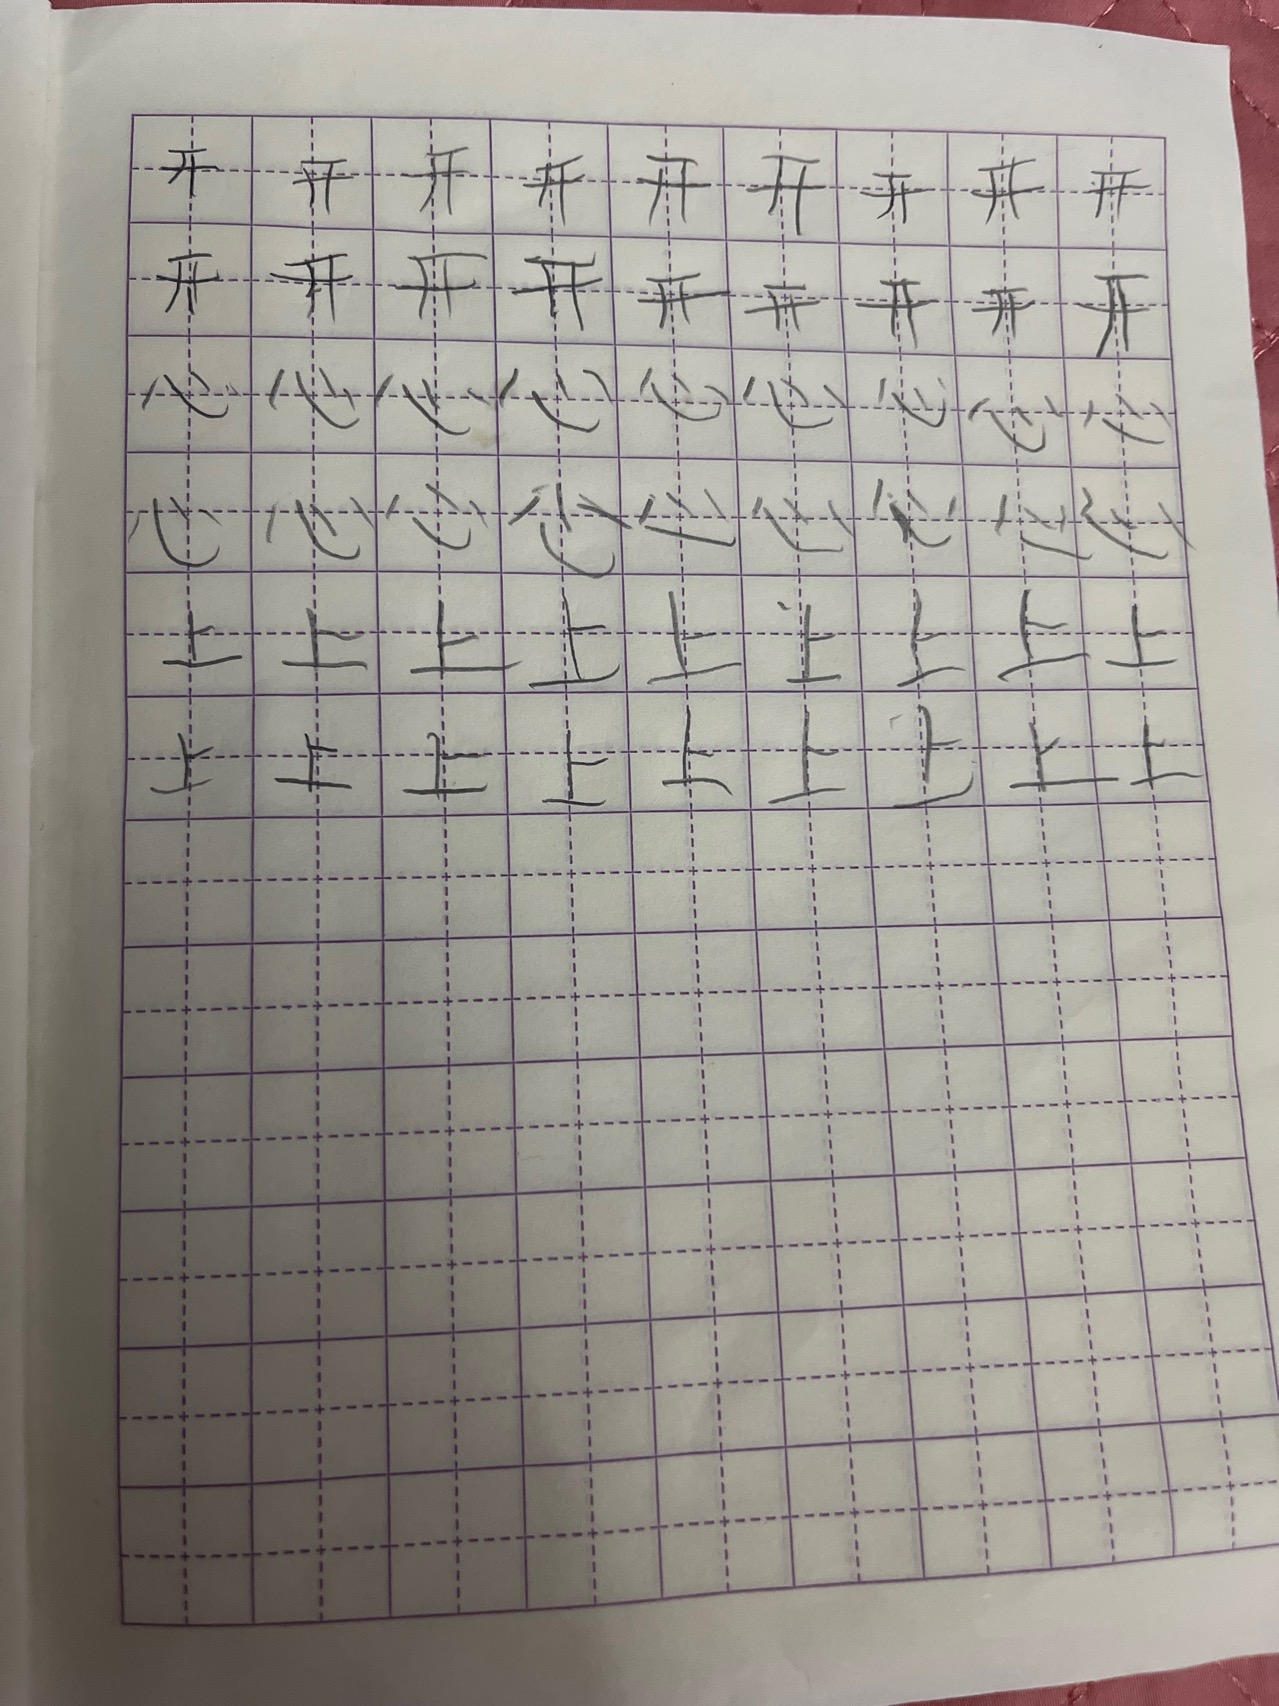 开开开开开开开开开
开开开开开开开开开
心心心心心心心心心
心心心心心心心心心
上上上上上上上上上
上上上上上上上上上